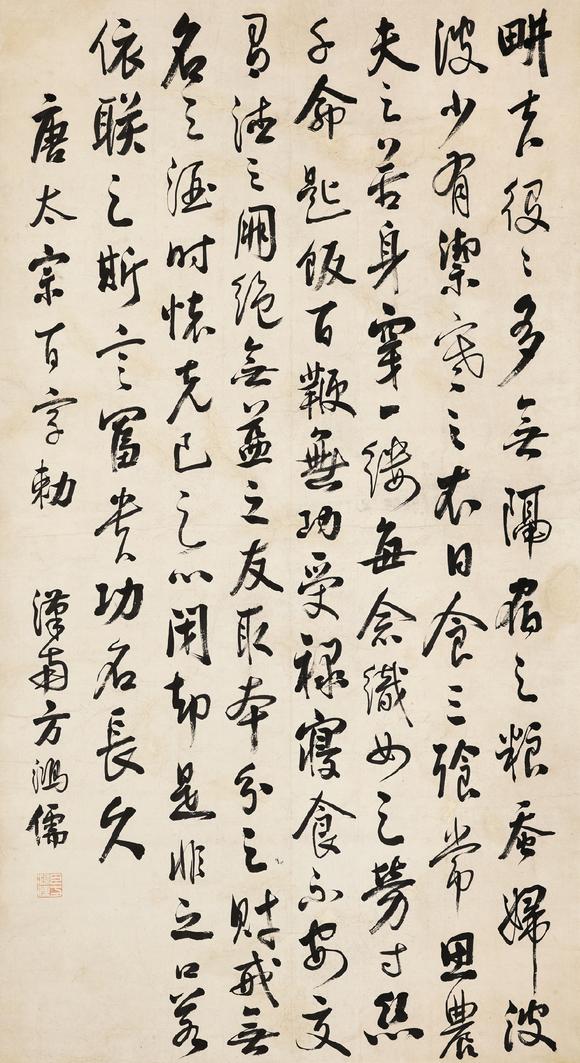 耕者役〻多無隔宿之粮蚕婦波
波少有禦寒之衣日食三飡常思農
夫之苦身穿一縷每念織女之勞寸絲
千命匙飯百鞭無功受祿寢食不安交
有德之朋絕無益之友取本分之財戒無
名之酒時懷克己之心閉却是非之口若
依朕之斯言富貴功名長久
唐太宗百字勅 漢南方鴻儒